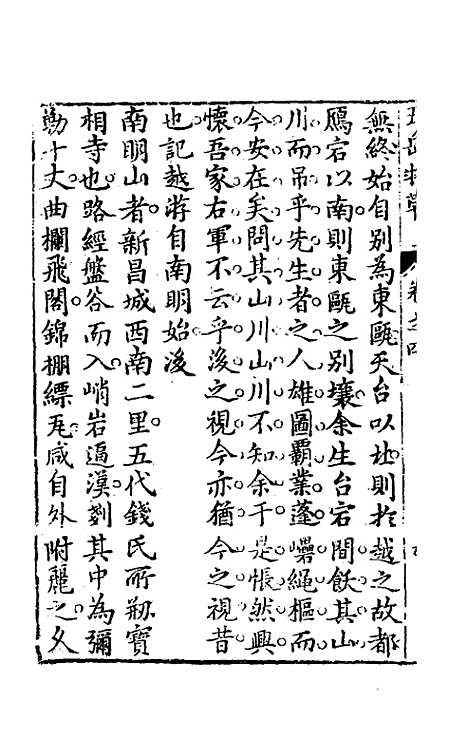 無終始自別為東甌天台以北則於越之故都
鴈宕以南則東甌之別壤余生台宕間飫其山
川而吊乎先生者之人雄圖霸業蓬礨繩樞而
今安在矣問其山川山川不知余于是悵然興
懷吾家右軍不云乎後之視今亦猶今之視昔
也記越游自南明始後
南明山者新昌城西南二里五代錢氏所剏寶
相寺也路經盤谷而入峭岩逼漢劖其中為彌
勒十丈曲欄飛閣錦棚縹瓦咸自外附麗之久
卷之四